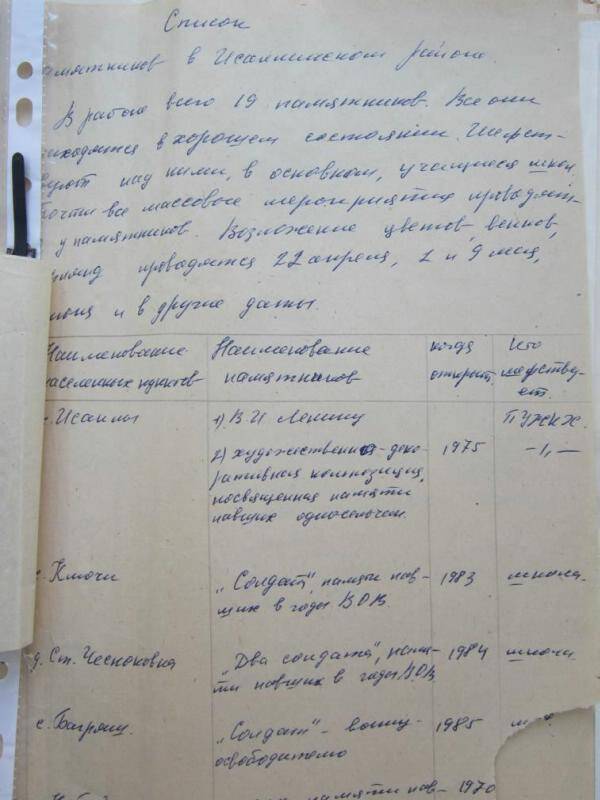 Список
амятников в Исаклинском районе.
В районе всего 19 памятников. Все они
находятся в хорошем состоянии. Шефст-
вуют над ними, в основном, учащиеся школ.
почти все массовые мероприятия проводят-
у памятников. Возложение цветов, венков,
проводятся 22 апреля, 1 и 9 мая,
и в другие даты.
Наименование населенных пунктов
Наименование памятников
когда открыт.
кто шефству-
ет.
с. Исаклы
1) В.И Ленину
ПУЖКХ.
2) художественно-деко-
ративная композиция,
посвященная памяти
павших односельчан.
1975
-"-
с. Ключи
"Солдат", памяти пав-
ших в годы ВОВ.
1983
школа.
д. Ст. Чесноковка
"Два солдата", памя-
ти павших в годы ВОВ
1984
с. Багряш.
"Солдат" - воину-
освободителю
1985
памяти пав-
1970